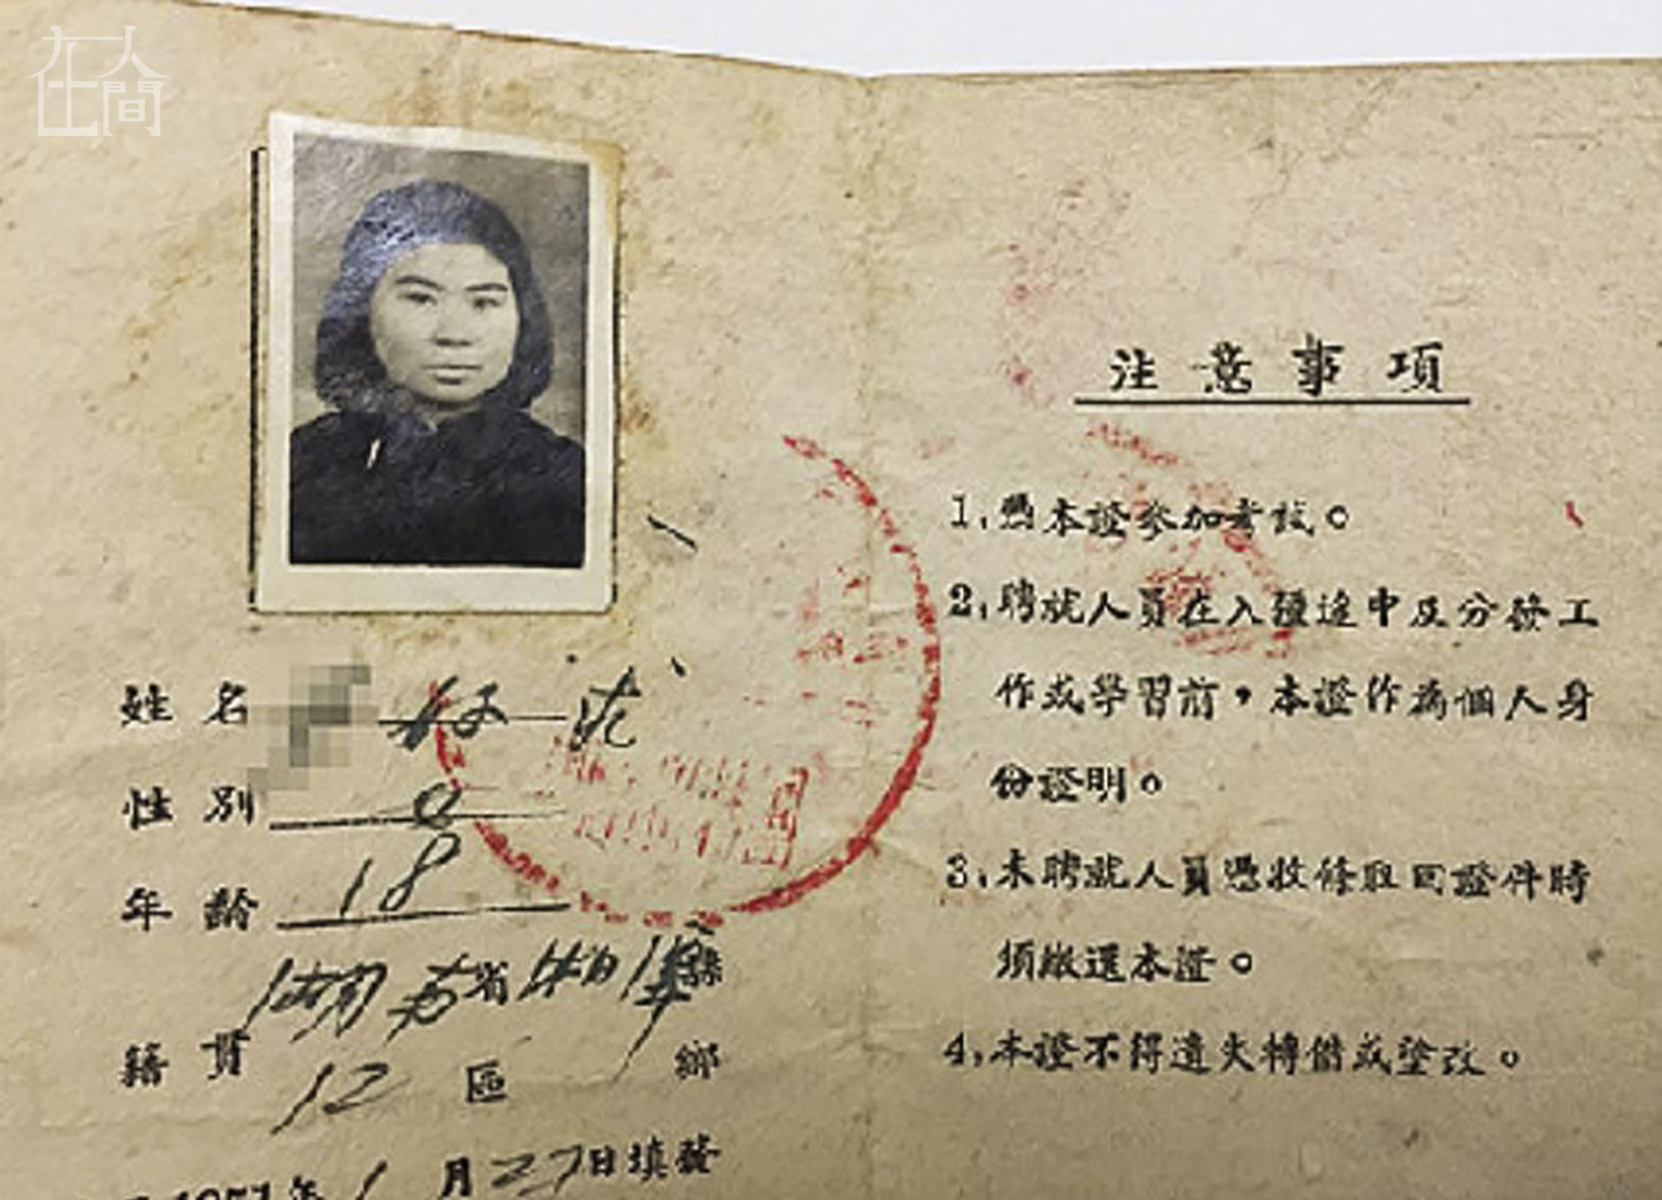 在人間
姓名 好沈
性別 女
年齡 18
湖南省湘潭縣
籍貫 12區 鄉
1951年1月27日填發
注意事項
1,憑本證參加考核。
2,聘就人員在入疆途中及分發工
作或學習前,本證作為個人身
份證明。
3,未聘就人員憑收條取回證件時
須繳還本證。
4,本證不得遺失轉借或塗改。